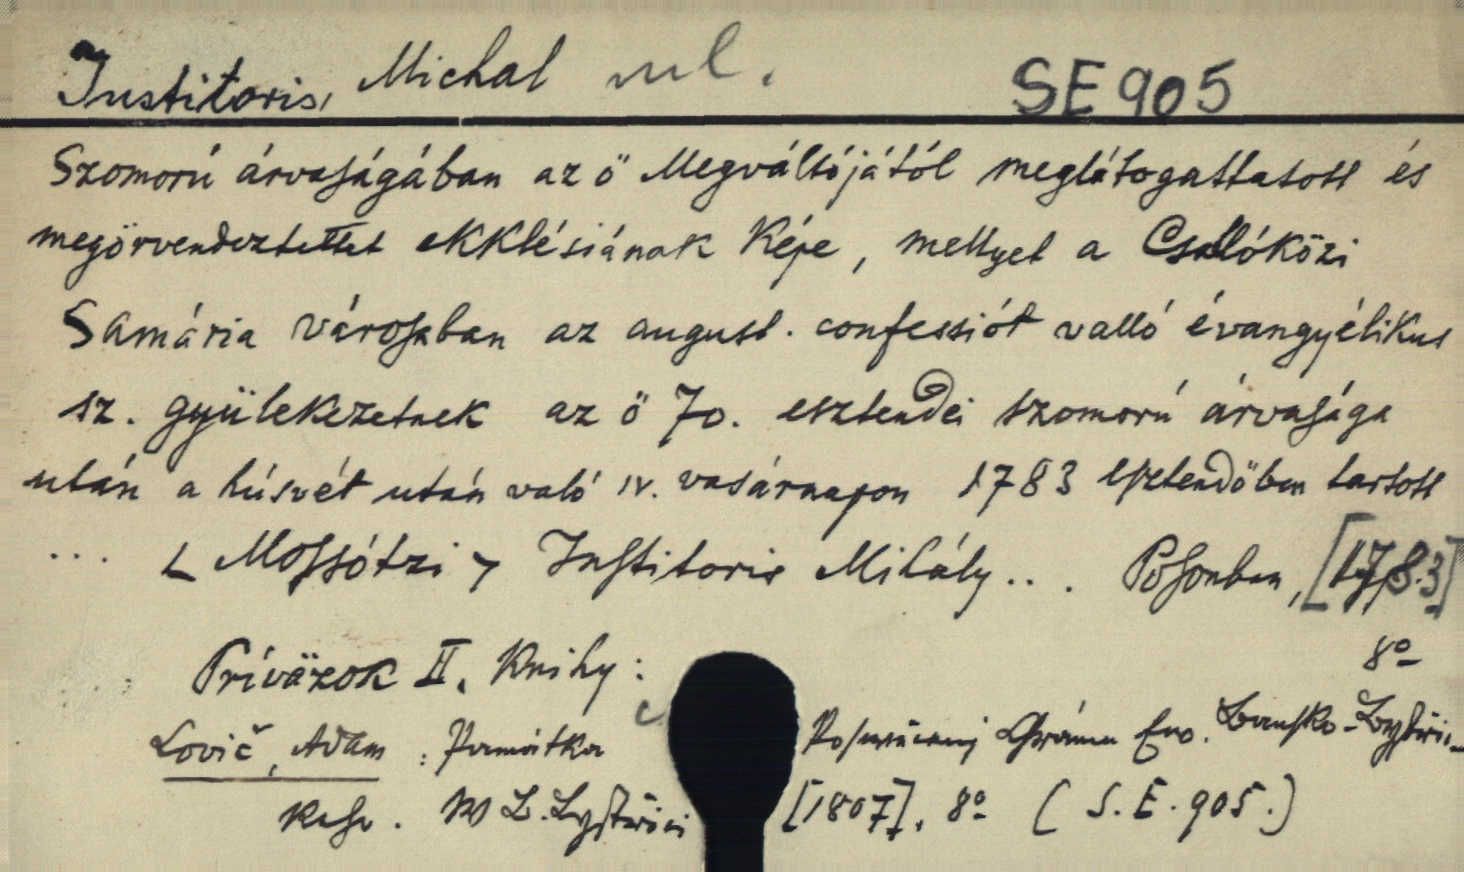 Institoris, Michal ml. SE 905
Szomorú árvaságában az ö Megváltójától meglátogattatott és
megörvendeztettet ekklésiának Képe, mellyet a Csallóközi
Samária városában az august. confessiót valló évangyélikus
sz. gyülekezetnek az ö 70. esztendei szomorú árvasága
után a húsvét után való IV. vasárnapon 1783 esztendöben tartott
... < Mossótzi > Institoris Mihály ... Posonban, [1783]
8º
Príväzok II. Knihy:
Lovič, Adam : Památka Chrámu Ewo. Bansko-Bystřic-
keho. W B. Bystřici [1807]. 8º (S.E. 905.)